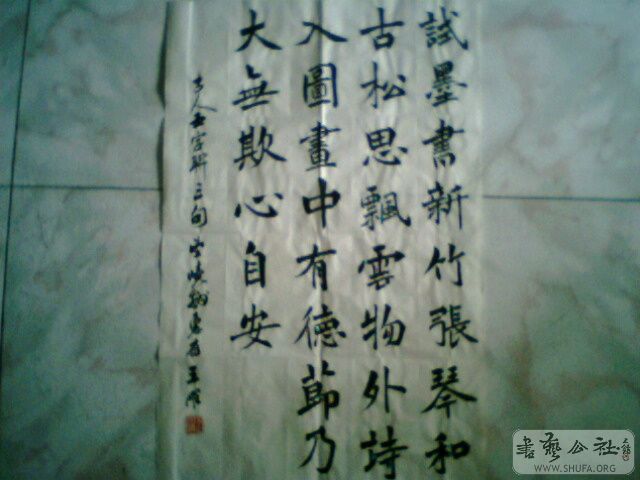 試墨書新竹張琴和
古松思飄雲物外詩
入圖畫中有德節乃
大無欺心自安
古人五字聯三句
書藝公社
WWW.SHUFA.ORG